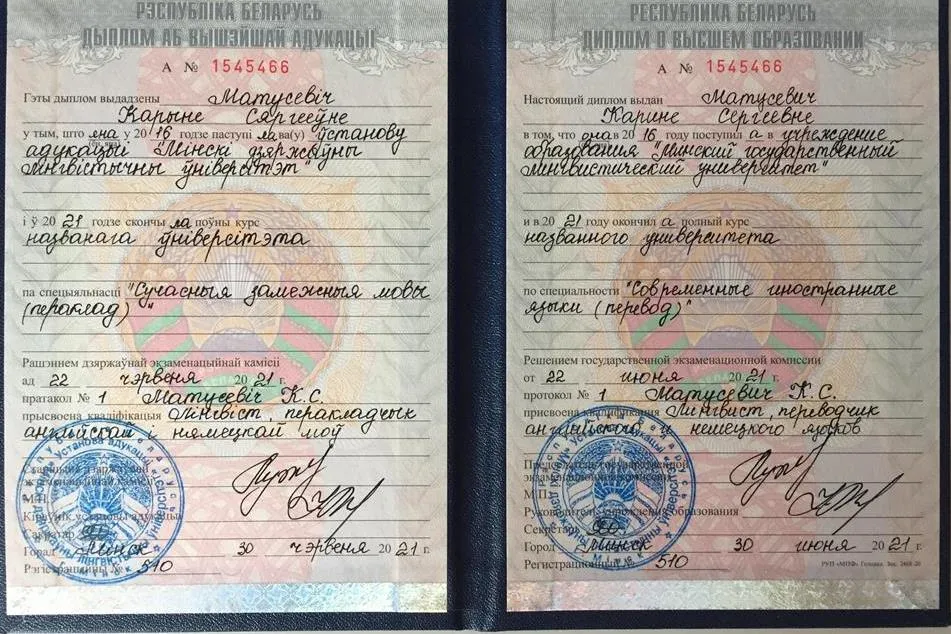 РЭСПУБЛІКА БЕЛАРУСЬ
ДЫПЛОМ АБ ВЫШЭЙШАЙ АДУКАЦЫІ
А № 1545466
Гэты дыплом выдадзены Матусевіч
Карыне Сяргееўне
у тым, што яна у 2016 годзе паступіла ва(у) ўстанову
адукацыі "Мінскі дзяржаўны
лінгвістычны ўніверсітэт"
і ў 2021 годзе скончыла поўны курс
названага ўніверсітэта
па спецыяльнасці "Сучасныя замежныя мовы
(пераклад)"
Рашэннем дзяржаўнай экзаменацыйнай камісіі
ад 22 чэрвеня 2021 г.
пратакол № 1 Матусевіч К.С.
прысвоена кваліфікацыя Лінгвіст, перакладчык
англійскай і нямецкай моў
Старшыня дзяржаўнай
экзаменацыйнай камісіі
М.П.
Кіраўнік установы адукацыі
Сакратар
Горад Мінск 30 чэрвеня 2021 г.
Рэгістрацыйны № 510
РЕСПУБЛИКА БЕЛАРУСЬ
ДИПЛОМ О ВЫСШЕМ ОБРАЗОВАНИИ
А № 1545466
Настоящий диплом выдан Матусевич
Карине Сергеевне
в том, что она в 2016 году поступила в учреждение
образования "Минский государственный
лингвистический университет"
и в 2021 году окончила полный курс
названного университета
по специальности "Современные иностранные
языки (перевод)"
Решением государственной экзаменационной комиссии
от 22 июня 2021 г.
протокол № 1 Матусевич К.С.
присвоена квалификация Лингвист, переводчик
английского и немецкого языков
Председатель государственной
экзаменационной комиссии
М.П.
Руководитель учреждения образования
Секретарь
Город Минск 30 июня 2021 г.
Регистрационный № 510
РУП «МПФ» Гознака. Зак. 2468-20